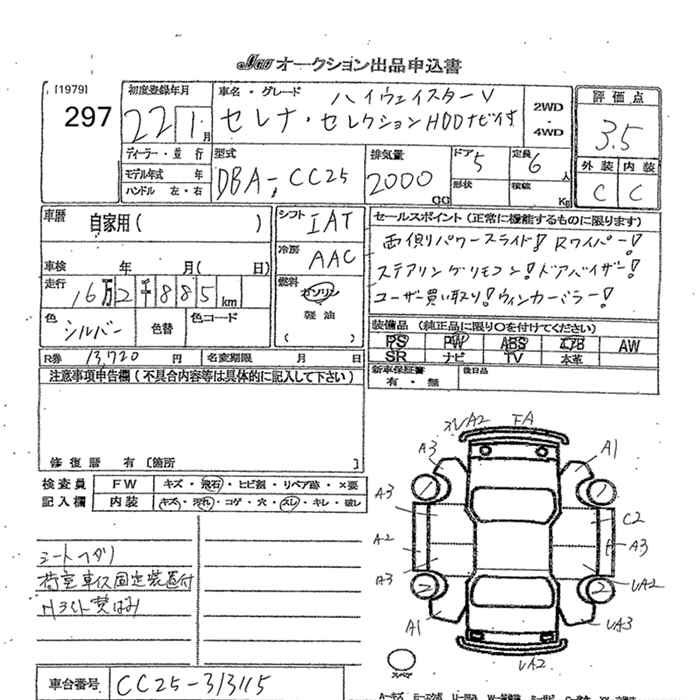 JU オークション出品申込書
[1979]
297
初度登録年月
22 1月
車名・グレード
ハイウェイスターV
セレナ・セレクションHDDナビ付
2WD
・
4WD
評価点
3.5
外装 内装
C C
ディーラー・並行
モデル年式 年
ハンドル 左・右
型式
DBA-CC25
排気量
2000 cc
ドア 5
形状
定員 6 人
積載 Kg
車歴
自家用( )
車検 年 月( 日)
走行 16万2千885km
色 シルバー
色替
色コード
シフト IAT
冷房 AAC
燃料
ガソリン
軽油
( )
セールスポイント(正常に機能するものに限ります)
両側パワースライド! Rワイパー!
ステアリングリモコン! ドアバイザー!
ユーザー買い取り! ウィンカーミラー!
装備品(純正品に限り○を付けてください)
PS PW ABS エアB AW
SR ナビ TV 本革
新車保証書
有・無
後日品
R券 13,720 円
名変期限 月 日
注意事項申告欄(不具合内容等は具体的に記入して下さい)
修復歴 有 [箇所 ]
検査員
記入欄
FW キズ・飛石・ヒビ割・リペア跡・×要
内装 キズ・汚れ・コゲ・穴・スレ・キレ・破レ
シートヘタリ
荷室車イス固定装置付
車台番号 CC25-313115
A2 FA
A3 A1
A3 C2
A2 A3
A3 UA2
A1 UA3
UA2
スペア